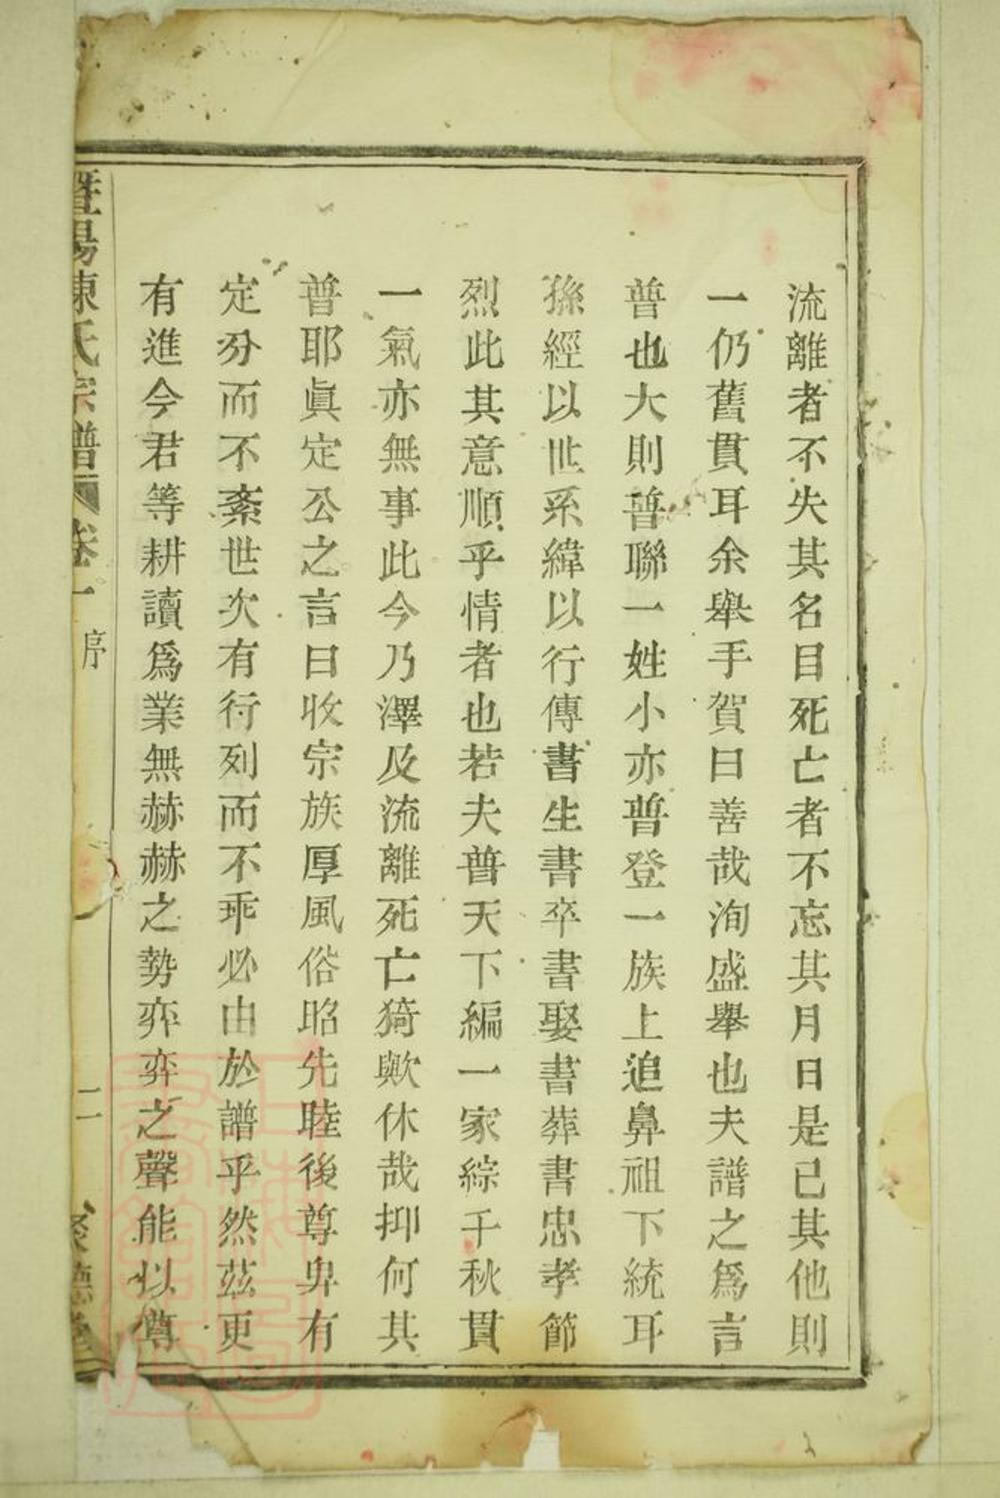 流離者不失其名目死亡者不忘其月日是已其他則
一仍舊貫耳余舉手賀曰善哉洵盛舉也夫譜之爲言
普也大則普聯一姓小亦普登一族上追鼻祖下統耳
孫經以世系緯以行傳書生書卒書娶書葬書忠孝節
烈此其意順乎情者也若夫普天下編一家綜千秋貫
一氣亦無事此今乃澤及流離死亡猗歟休哉抑何其
普耶眞定公之言曰收宗族厚風俗昭先睦後尊卑有
定分而不紊世次有行列而不乖必由於譜乎然茲更
有進今君等耕讀爲業無赫赫之勢弈弈之聲能以尊
暨陽陳氏宗譜 卷一 序 二